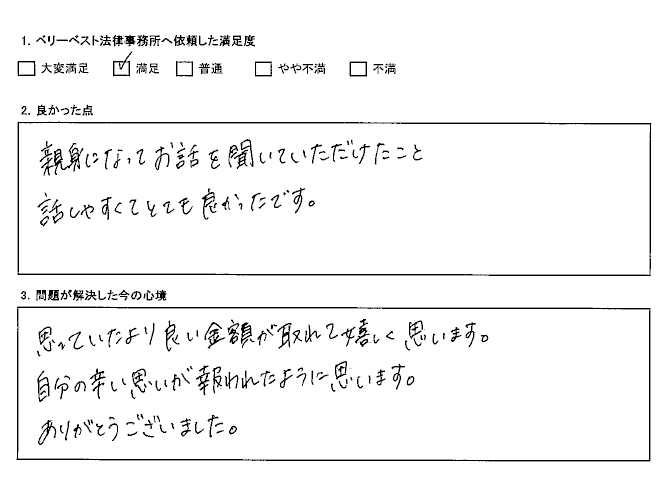 1. ベリーベスト法律事務所へ依頼した満足度
□ 大変満足 ☑ 満足 □ 普通 □ やや不満 □ 不満
2. 良かった点
親身になってお話を聞いていただけたこと
話しやすくてとても良かったです。
3. 問題が解決した今の心境
思っていたより良い金額が取れて嬉しく思います。
自分の辛い思いが報われたように思います。
ありがとうございました。